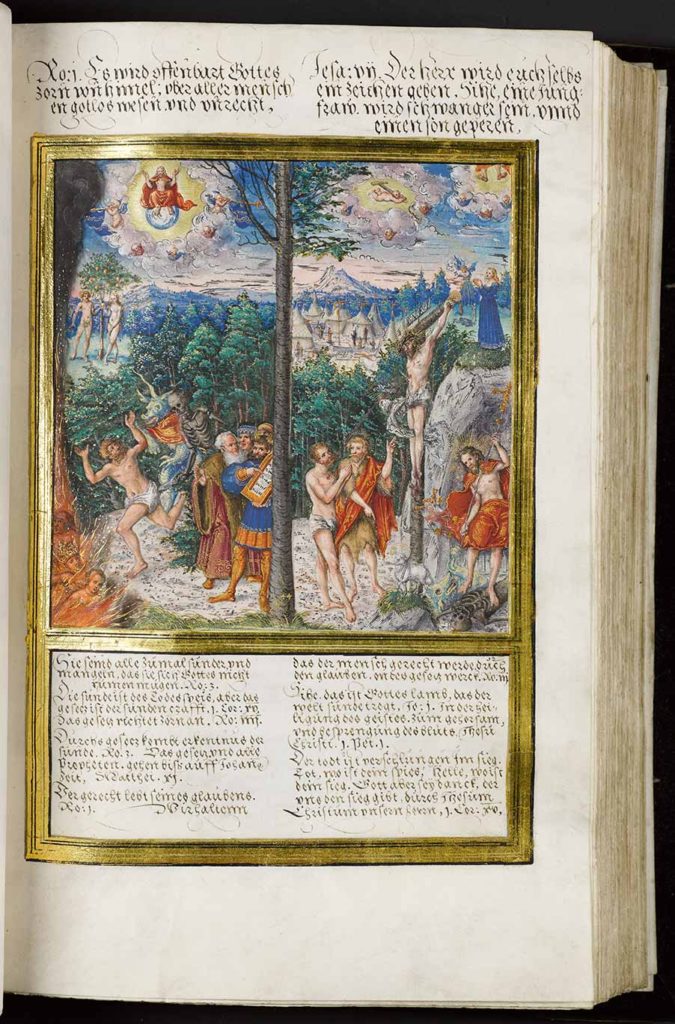 Ro: 1. Es wird offenbart Gottes
zorn von himel: vber aller mensch
en gotlos wesen vnd vnrecht,
Jesa: vij. Der herr wird euch selbs
ein zeichen geben. Sihe, eine Jung-
fraw wird schwanger sein, vnnd
einen son geperen,
Sie seind alle zůmal sünder, vnd
mangeln, das sie sich Gottes nicht
rümen mügen. Ro: 3.
Die sünde ist des Todes spies, aber das
gesetz ist der sünden crafft. 1. Cor: xv
Das gesetz richtet zorn an. Ro: iiij.
Durchs gesetz kombt erkentnus der
sünde. Ro: 3. Das gesetz vnd alle
Propheten. gehen bis auff Johans
Zeit, Mathei. xj.
Der gerecht lebt seines glaubens.
Ro: 1. Wir halten
das der mensch gerecht werde, durch
den glauben. on des gesetz werck. Ro. iij
Sihe. das ist Gottes lamb, das der
welt sünde tregt. Jo: 1. In der hei-
ligung des geistes. zum gehorsam,
vnd besprengung des bluts. Jhesu
Christi. 1. Pet: 1.
Der tod ist verschlungen im sieg.
Tot, wo ist dein spies, Helle, wo ist
dein sieg. Gott aber sey danck, der
vns den sieg gibt. durch Jhesum
Christum vnsern herrn, 1. Cor: xv.